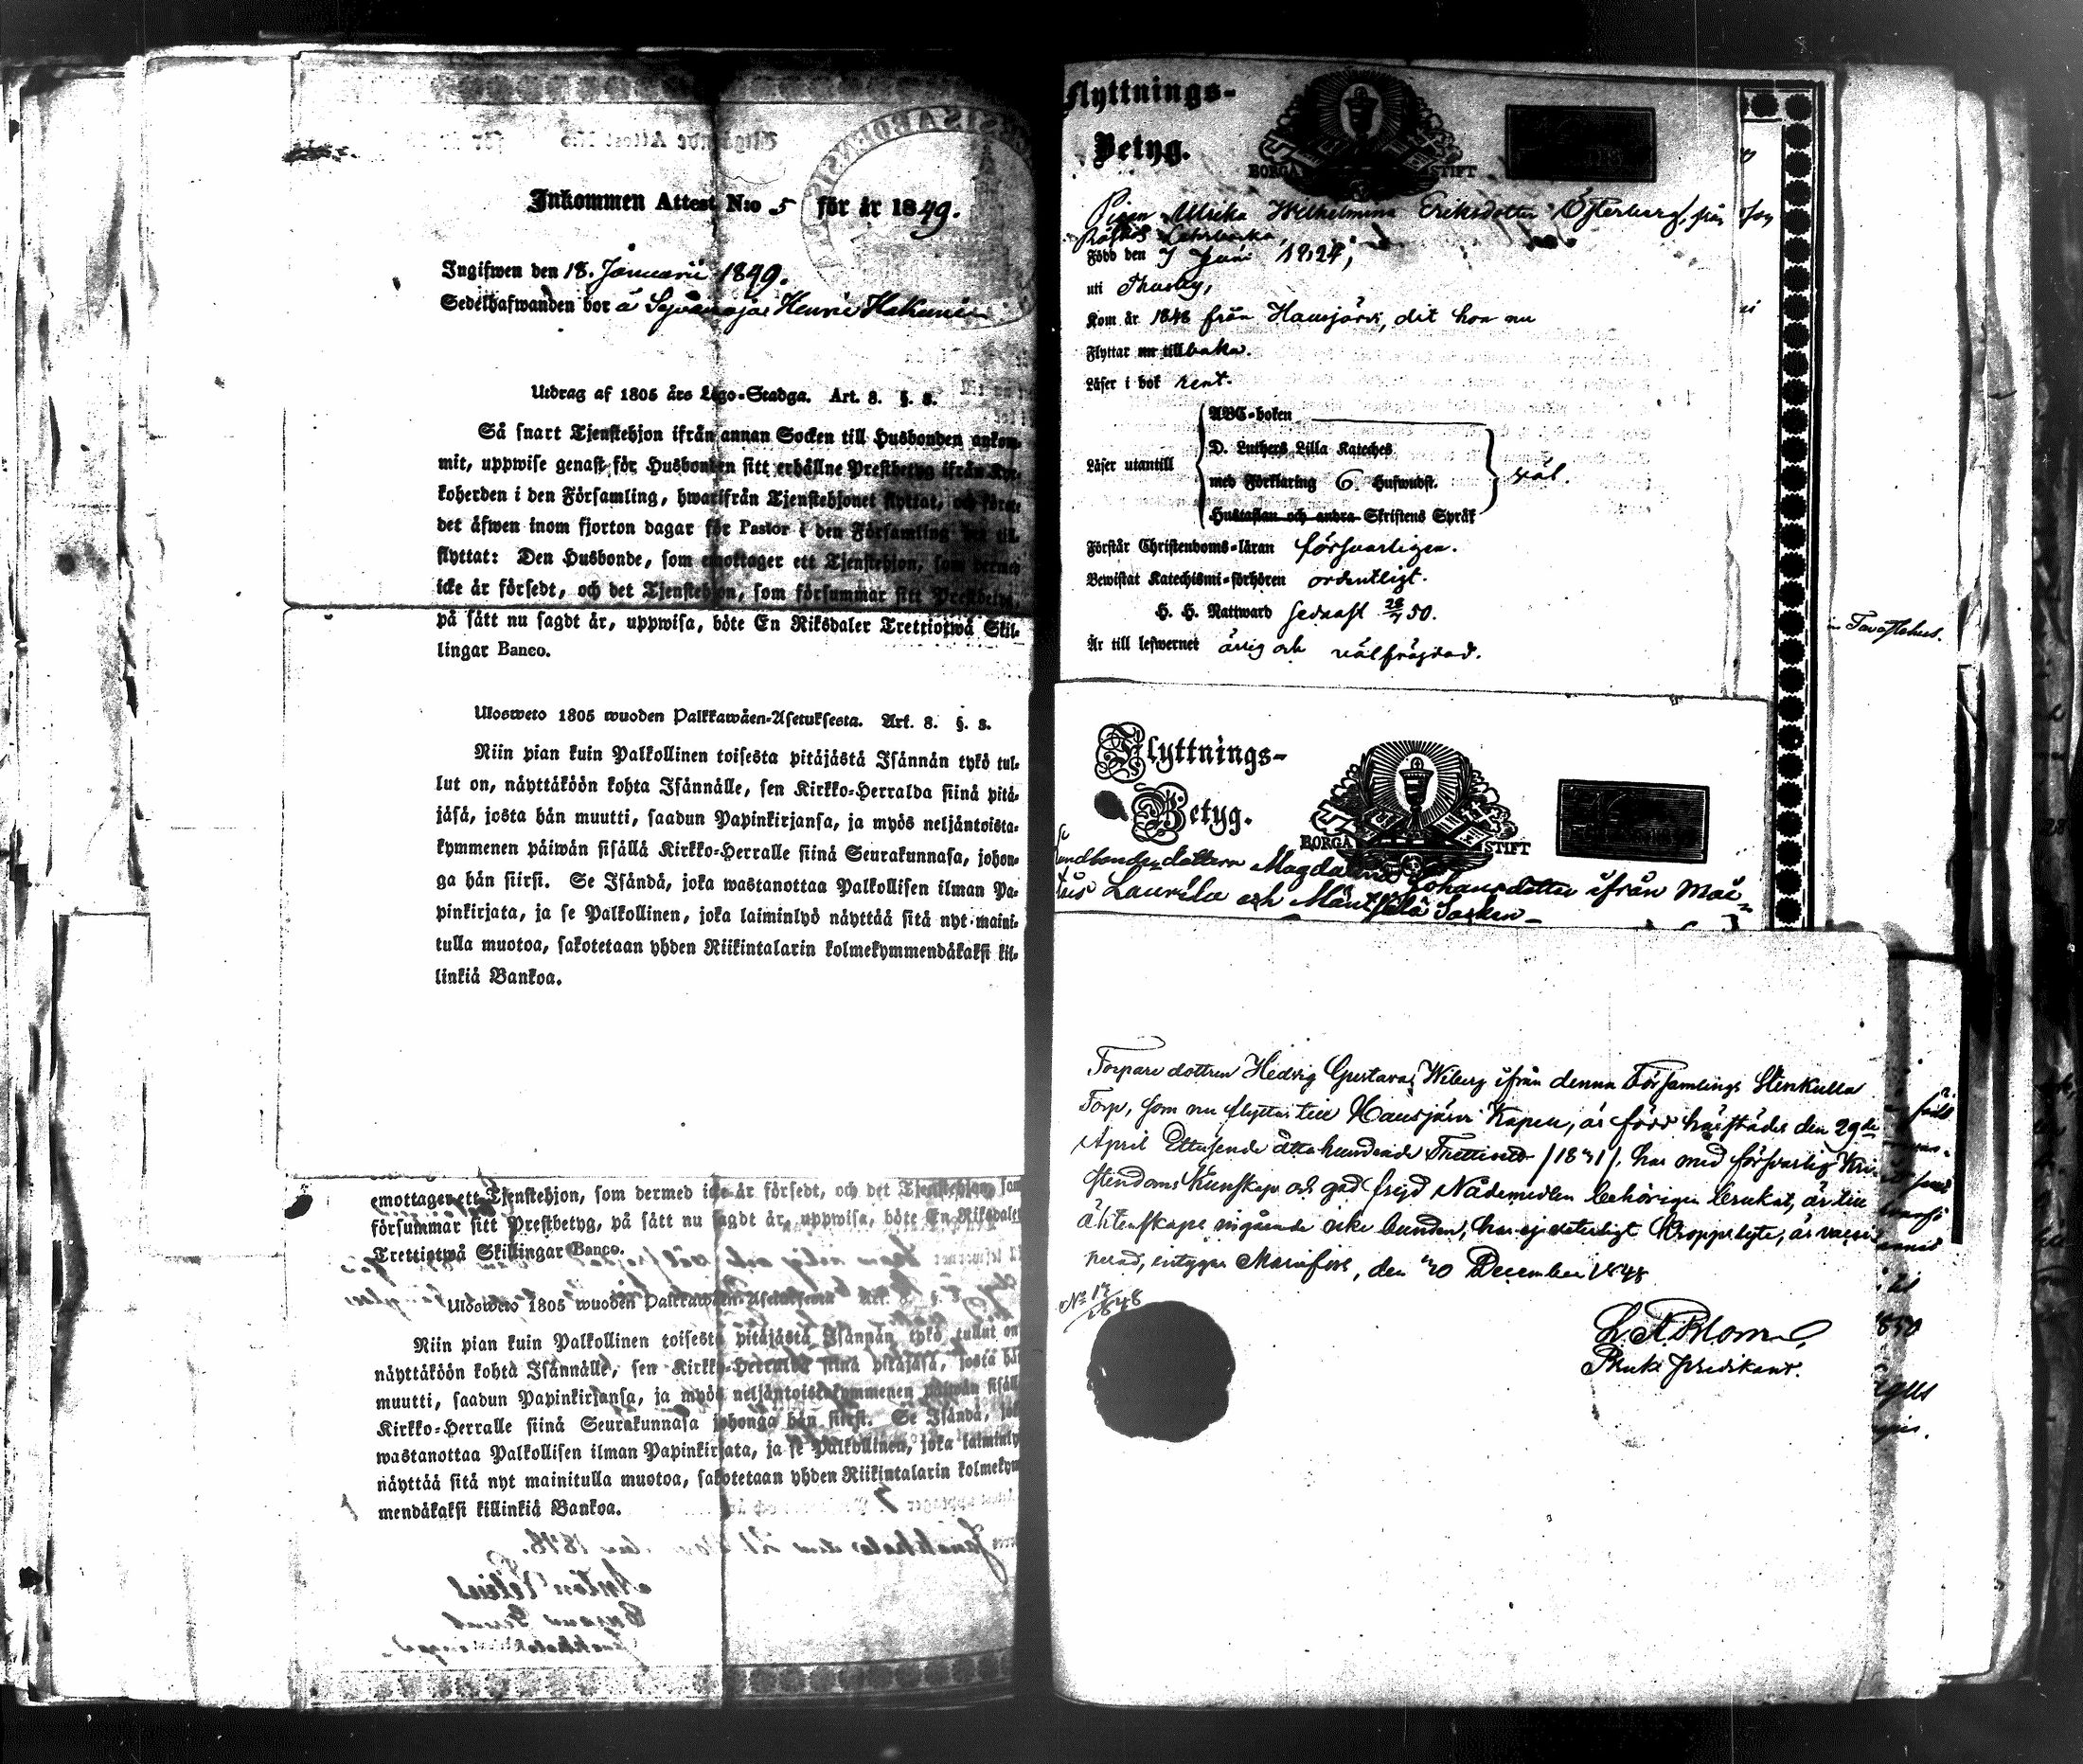 Inkommen Attest N:o 5 för år 1849.
Ingifwen den 18. Januarii 1849.
Sedelhafwanden bor å Henric
Utdrag af 1805 års Lego-Stadga. Art. 8. §. 8.
Så snart Tjenstehjon ifrån annan Socken till Husbonden ankom-
mit, uppwise genast för Husbonden sitt erhållne Prestbetyg ifrån Kyr-
koherden i den Församling, hwarifrån Tjenstehjonet flyttat, och
det äfwen inom fjorton dagar för Pastor i den Församling
flyttat: Den Husbonde, som emottager ett Tjenstehjon, som dermed
icke är försedt, och det Tjenstehjon, som försummar sitt Prestbetyg,
på sätt nu sagdt är, uppwisa, böte En Riksdaler Trettiotwå Skil-
lingar Banco.
Ulosweto 1805 wuoden Palkkawäen-Asetuksesta. Art. 8. §. 8.
Niin pian kuin Palkollinen toisesta pitäjästä Isännän tykö tul-
lut on, näyttäköön kohta Isännälle, sen Kirkko-Herralda siinä pitä-
jäsä, josta hän muutti, saadun Papinkirjansa, ja myös neljäntoista-
kymmenen päiwän sisällä Kirkko-Herralle siinä Seurakunnasa, johon-
ga hän siirsi. Se Isändä, joka wastanottaa Palkollisen ilman Pa-
pinkirjata, ja se Palkollinen, joka laiminlyö näyttää sitä nyt maini-
tulla muotoa, sakotetaan yhden Riikintalarin kolmekymmendäkaksi kil-
linkiä Bankoa.
emottager ett Tjenstehjon, som dermed icke är försedt, och det Tjenstehjon, som
försummar sitt Prestbetyg, på sätt nu sagdt är, uppwisa, böte En Riksdaler
Trettiotwå Skillingar Banco.
Ulosweto 1805 wuoden Palkkawäen-Asetuksesta Art. 8.
Niin pian kuin Palkollinen toisesta pitäjästä Isännän tykö tullut on
näyttäköön kohta Isännälle, sen Kirkko-Herralda siinä pitäjäsä, josta hän
muutti, saadun Papinkirjansa, ja myös neljäntoistakymmenen päiwän sisällä
Kirkko-Herralle siinä Seurakunnasa johonga hän siirsi. Se Isändä,
wastanottaa Palkollisen ilman Papinkirjata, ja se Palkollinen, joka laiminly
näyttää sitä nyt mainitulla muotoa, sakotetaan yhden Riikintalarin kolmekym
mendäkaksi killinkiä Bankoa.
Flyttnings-
Betyg.
BORGÅ STIFT
Pigan Ulrika Wilhelmina Eriksdotter Österberg, från
Född den 7 Juni 1824,
uti Thusby,
Kom år 1848 från Hausjärvi, dit hon nu
Flyttar nu tillbaka.
Läser i bok rent.
Läser utantill
ABC-boken
D. Luthers Lilla Kateches
med Förklaring 6. Hufwudst.
Hustaflan och andra Skriftens Språk
väl.
Förstår Christendoms-läran försvarligen.
Bewistat Katechismi-förhören ordentligt.
H. H. Nattward sednast 50.
Är till lefwernet ärlig och välfräjdad.
Tavastehus.
Flyttnings-
Betyg.
BORGÅ STIFT
Magdalena Johansdotter ifrån
Laurila och Mäntsälä Socken
Torpare dottren Hedvig Gustava Wiberg ifrån denna Församlings Stenkulla
Torp, som nu flyttar till Hausjärvi Kapell, är född härstädes den 29de
April Ettusende åtta hundrade Trettioett /1831/, har med försvarlig Kri-
stendoms Kunskap och god frejd Nådemedlen behörigen brukat, är till
äktenskaps ingående icke bunden, har ej veterligt Kroppslyte, är vacci-
nerad, intygar Mariefors, den 30 December 1848
No 13
1848
Bruks predikant.
1850